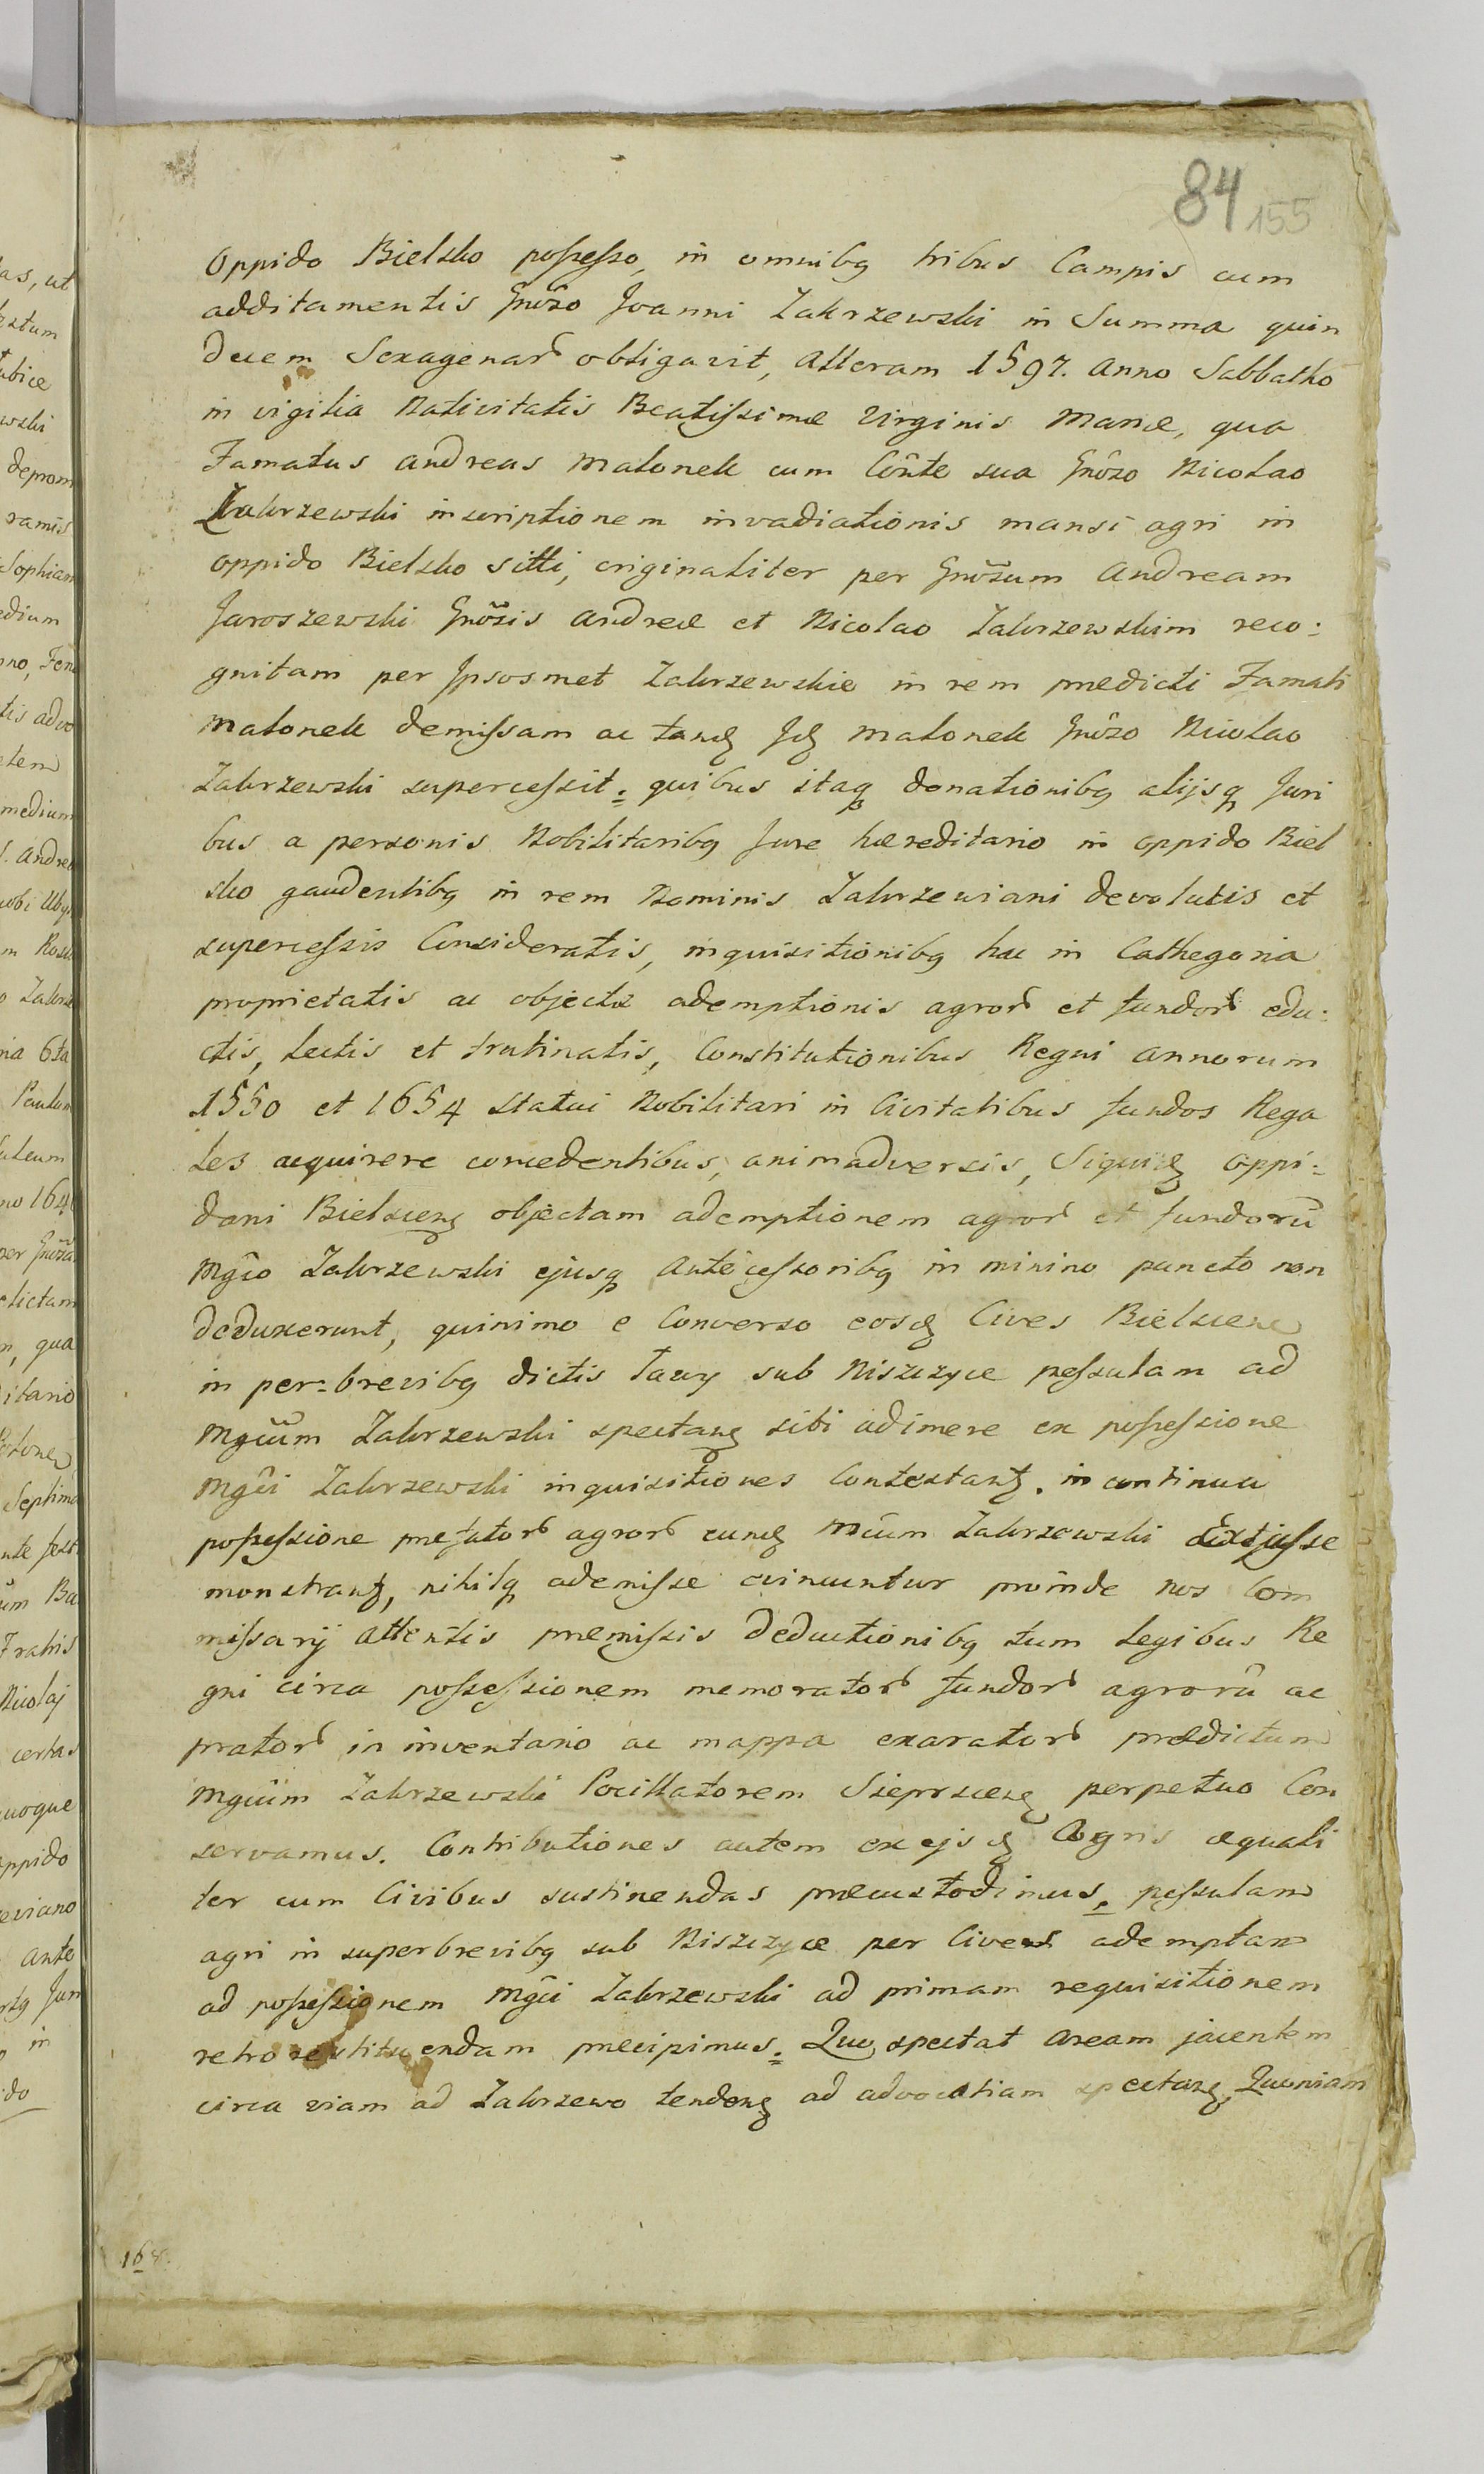 84 155
Oppido Bielsko possesso, in omnibq tribus Campis cum
additamentis Gnõso Joanni Zakrzewski in Summa quin
decem Sexagenar obligavit, Alteram 1597. Anno Sabbatho
in vigilia Nativitatis Beatissimæ Virginis Mariæ, qua
Famatus Andreas Matonek cum Cõnte sua Gnõso Nicolao
Zakrzewski inscriptionem invadiationis mansi agri in
oppido Bielsko sitti, originaliter per Gnõsum Andream
Jaroszewski Gnõsis Andreæ et Nicolao Zakrzewskim reco:
gnitam per Ipsosmet Zakrzewskie in rem prædicti Famati
Matonek demissam ac tanq Jq Matonek Gnõso Nicolao
Zakrzewski supercessit; quibus itaq donationibq alijsq Juri
bus a personis Nobilitaribq Jure hæreditario in oppido Biel
sko gaudentibq in rem Nominis Zakrzewiani devolutis et
supercessis Consideratis, inquisitionibq hac in Cathegoria
proprietatis ac objectæ ademptionis agror et fundor edu:
ctis, lectis et trutinatis, Constitutionibus Regni annorum
1550 et 1654 statui Nobilitari in Civitatibus fundos Rega
les acquirere concedentibus, animadversis, Siquiq oppi:
dani Bielscenq objectam ademptionem agror et fundorũ
Mgĩco Zakrzewski ejusq Antecessoribq in minimo puncto non
deduxerunt, quinimo e Converso eosq Cives Bielscens
in per=brevibq dictis Tawy sub Niszczyce pessulam ad
Mgcũm Zakrzewski spectanq sibi adimere ex possessione
Mgĩci Zakrzewski inquisitiones Contestantq. in continua
possessione præfator agror eunq Mcũm Zakrzewski
monstrantq, nihilq ademisse evincuntur proinde nos Com
missarij Attentis præmissis deductionibq tum legibus Re
gni circa possessionem memorator fundor agrorũ ac
prator in inventario ac mappa exarator prædictum
Mgcũm Zakrzewski Pocillatorem Sieprscenq perpetuo Con
servamus. Contributiones autem ex ejsq Agris æquali
ter cum Civibus sustinendas præcustodimus, pessulam
agri in superbrevibq sub Niszczyce per Cives ademptam
ad possessionem Mgĩci Zakrzewski ad primam requisitionem
retro restituendam præcipimus. Quo spectat Aream jacentem
circa viam ad Zakrzewo tendenq ad advocatiam spectanq, Quoniam